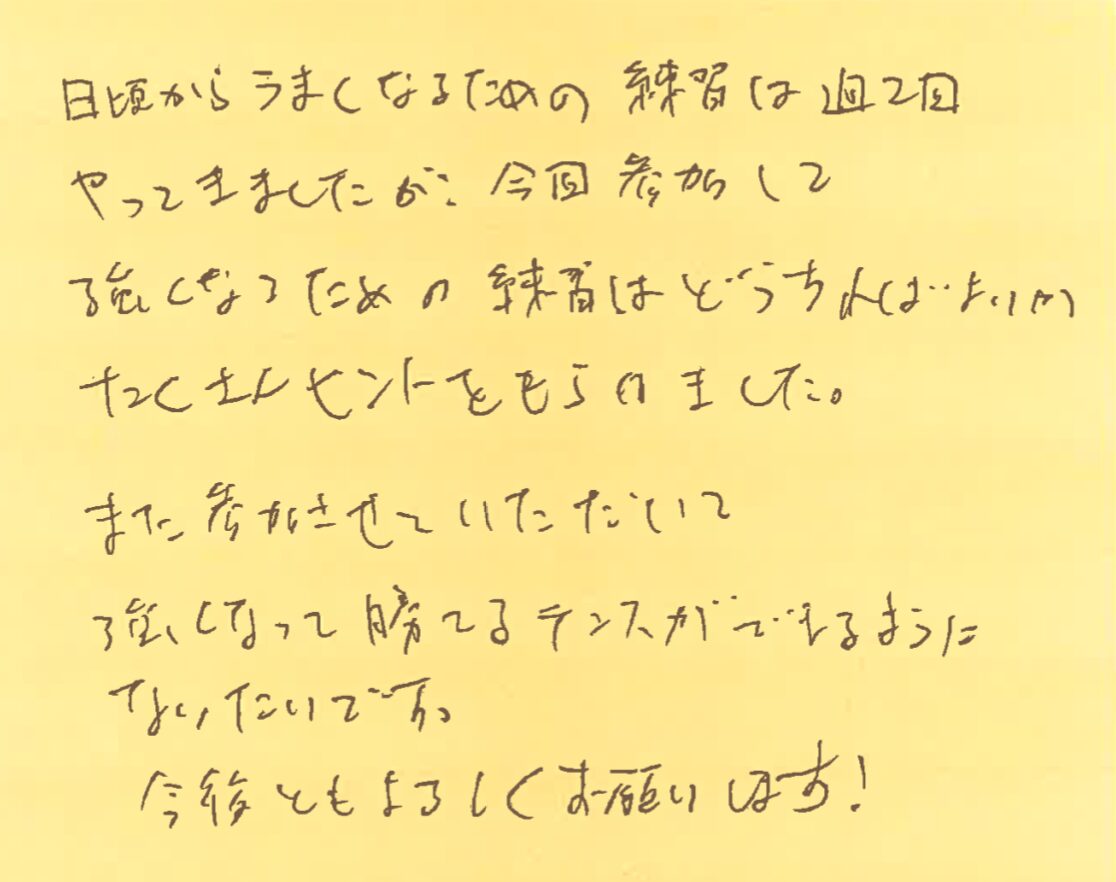 日頃からうまくなるための練習は週2回
やってきましたが、今回参加して
強くなるための練習はどうすればよいか
たくさんヒントをもらいました。
また参加させていただいて
強くなって勝てるテニスができるように
なりたいです。
今後ともよろしくお願いします!